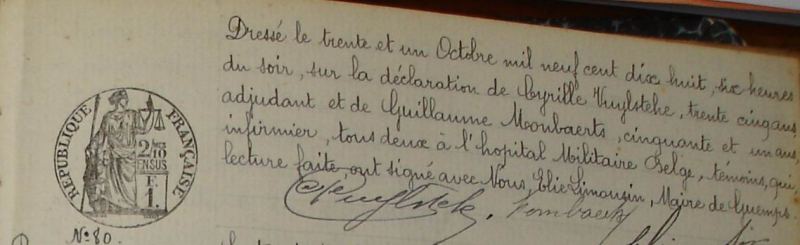 Dressé le trente et un Octobre mil neuf cent dix huit, six heures
du soir, sur la déclaration de Cyrille Vuylsteke, trente cinq ans
adjudant et de Guillaume Mombaerts, cinquante et un ans,
infirmier, tous deux à l'hopital Militaire Belge, témoins, qui,
lecture faite, ont signé avec Nous, Elie Limousin, Maire de Guemps.
CVuylsteke. Mombaerts
RÉPUBLIQUE FRANÇAISE
2/10
EN SUS
F.
1.
N° 80.